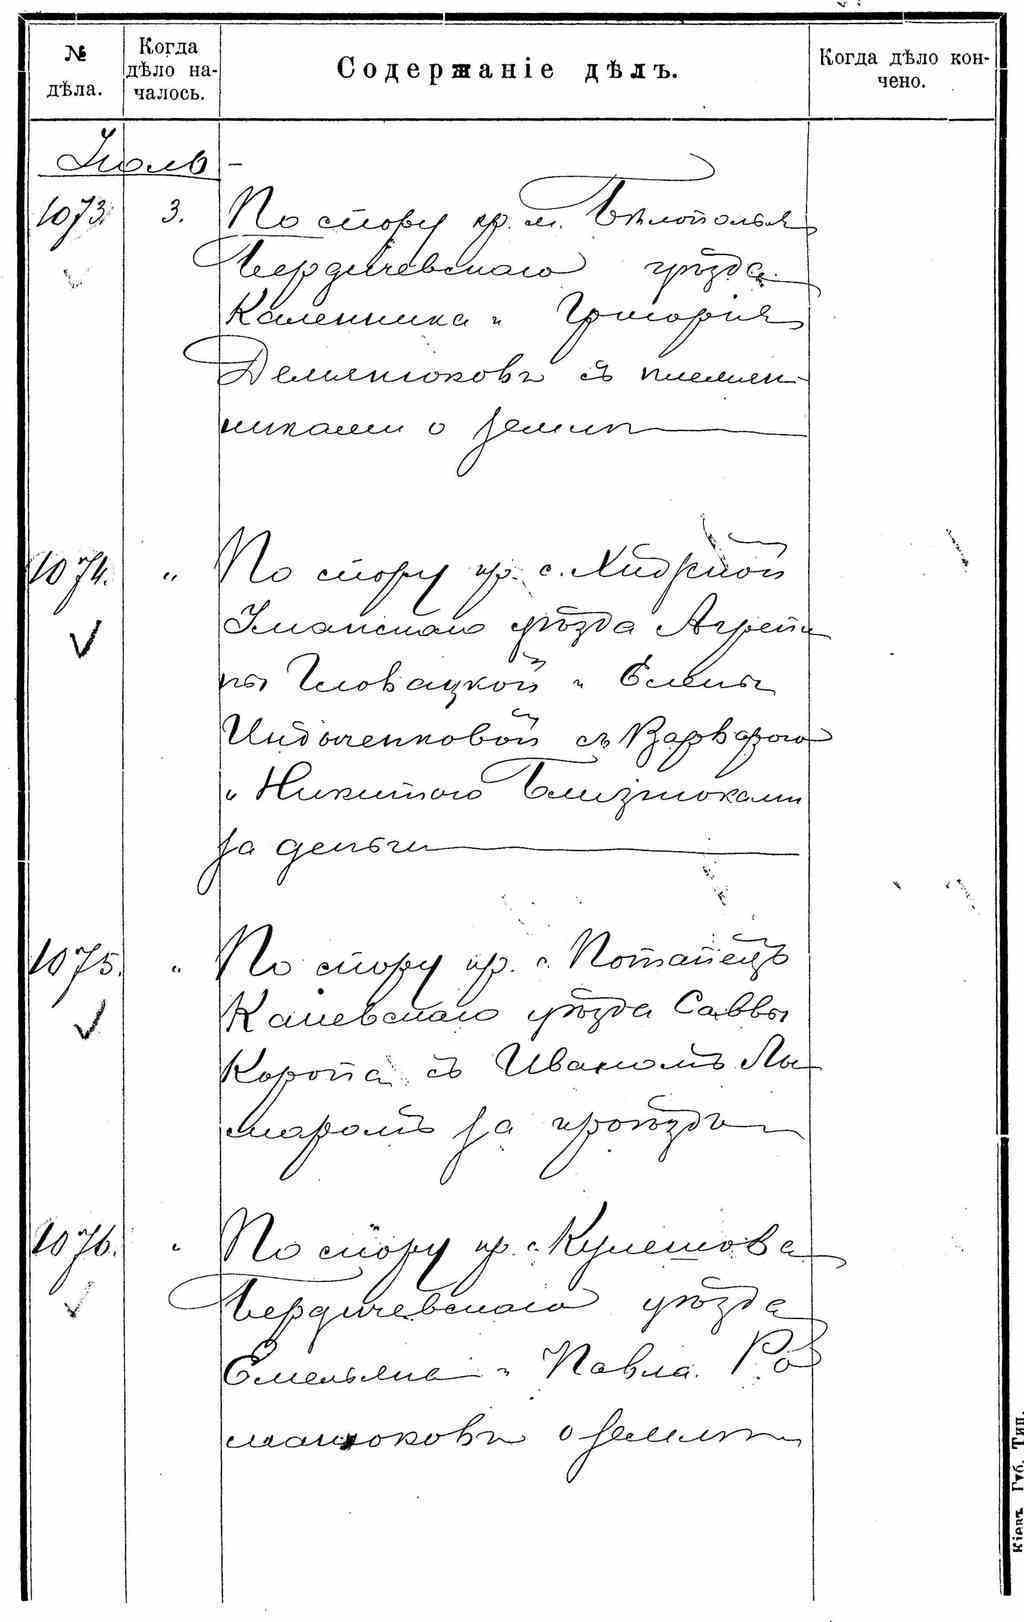 № дѣла.
Когда дѣло на-
чалось.
Содержаніе дѣлъ.
Когда дѣло кон-
чено.
Іюль -
1073. 3. По спору кр. м. Бѣлополья
Бердичевскаго уѣзда
Каленника и Григорія
Демянюковъ съ племян-
никами о землѣ
1074. " По спору кр. с.
Уманскаго уѣзда Агрепи
ны Гловацкой и Елены
съ Варварою
и Никитою Близнюками
за деньги
1075. " По спору кр. с. Потапецъ
Каневскаго уѣзда Саввы
Коропа съ Иваномъ Лы
маромъ за проѣздъ
1076. " По спору кр. с. Кулешова
Бердичевскаго уѣзда
Емельяна и Павла Ро
манюковъ о землѣ
Кіевъ. Губ. Тип.